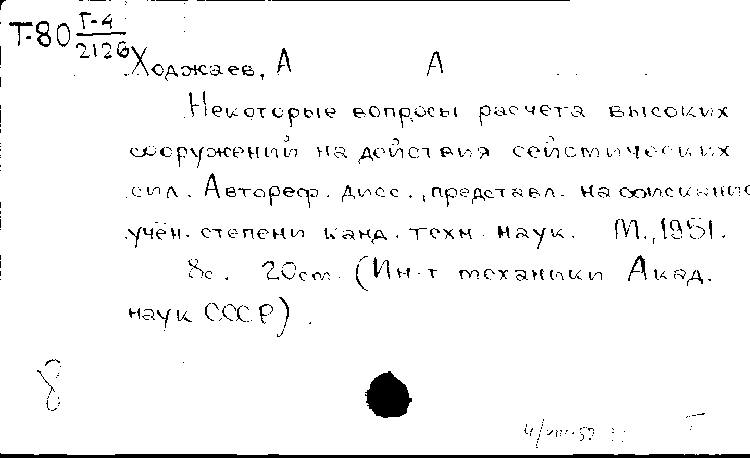 Т-80 Г-4
2126
Ходжаев, А А
Некоторые вопросы расчета высоких
сооружений на действия сейсмических
сил. Автореф. дисс., представл. на соискание
учен. степени канд. техн. наук. М., 1951.
8с. 20см. (Ин-т механики Акад.
наук СССР).
8
4/VIII-59
Т